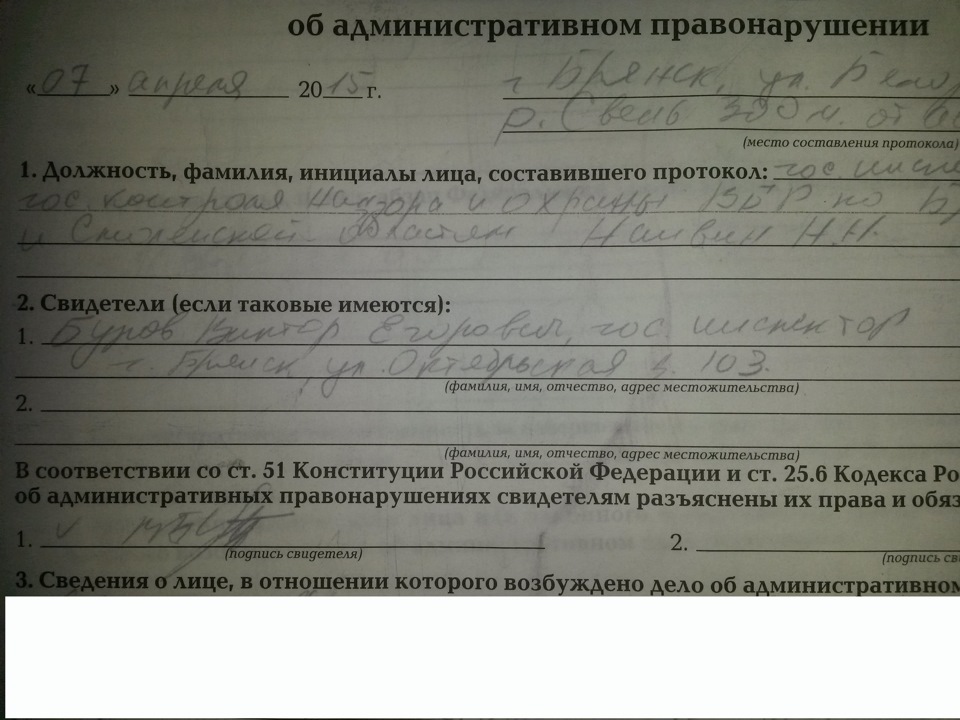 об административном правонарушении
« 07 » апреля 2015 г.
г Брянск, ул. Бело
р. Свень 300 м. от
(место составления протокола)
1. Должность, фамилия, инициалы лица, составившего протокол: гос. инспе
гос. контроля надзора и охраны ВБР по Б
и Смоленской областям Наивин Н.Н.
2. Свидетели (если таковые имеются):
1. Буров Виктор Егорович, гос. инспектор
г. Брянск, ул. Октябрьская з. 103.
(фамилия, имя, отчество, адрес местожительства)
2.
(фамилия, имя, отчество, адрес местожительства)
В соответствии со ст. 51 Конституции Российской Федерации и ст. 25.6 Кодекса Ро
об административных правонарушениях свидетелям разъяснены их права и обяз
1. 2.
(подпись свидетеля) (подпись сви
3. Сведения о лице, в отношении которого возбуждено дело об административном